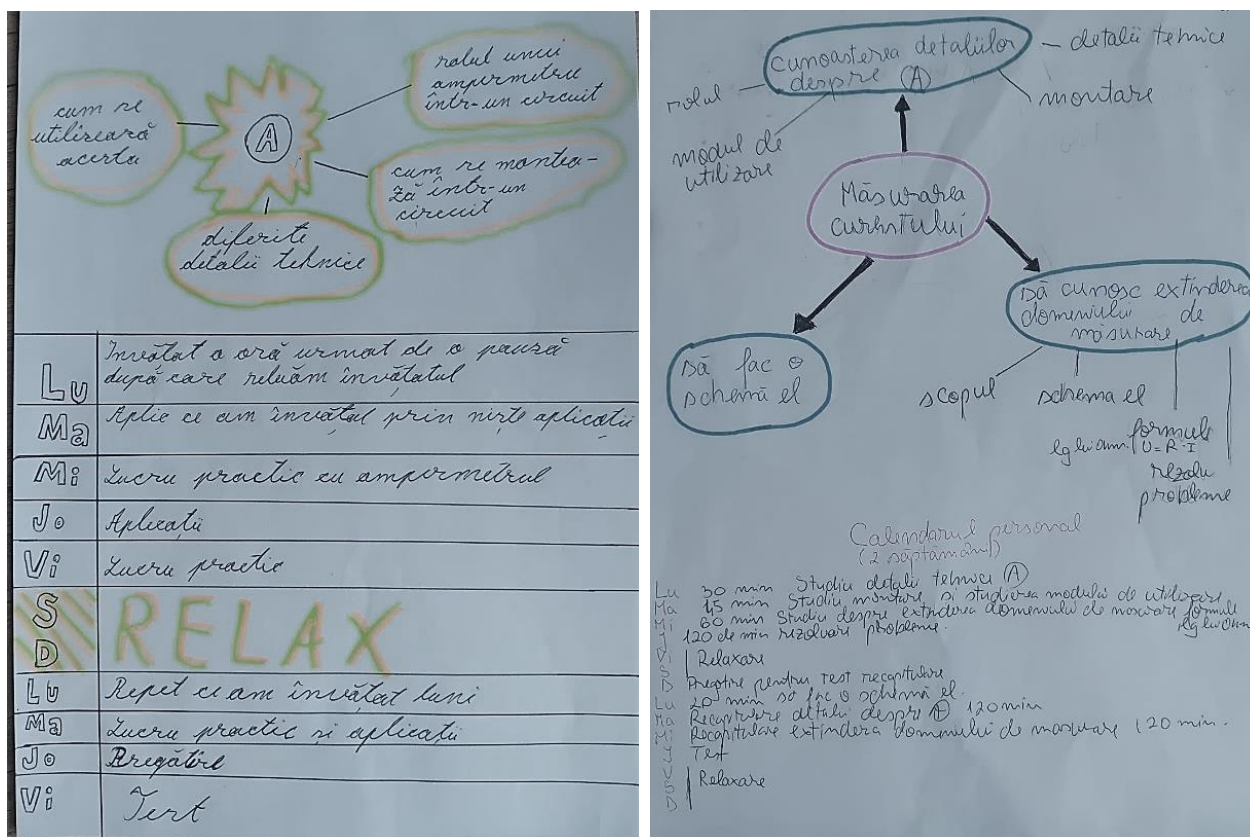 cum se
utilizează
acesta
A
rolul unui
ampermetru
într-un circuit
cum se montea-
ză într-un
circuit
diferite
detalii tehnice
Lu
Învățat o oră urmat de o pauză
după care reluăm învățatul
Ma
Aplic ce am învățat prin niște aplicații
Mi
Lucru practic cu ampermetrul
Jo
Aplicații
Vi
Lucru practic
S
D
RELAX
Lu
Repet ce am învățat luni
Ma
Lucru practic și aplicații
Jo
Pregătire
Vi
Test
cunoasterea detaliilor
despre A
detalii tehnice
rolul
montare
modul de
utilizare
Măsurarea
curentului
să cunosc extinderea
domeniului de
măsurare
să fac o
schemă el
scopul
schema el
formule
lg lui Ohm U=R·I
rezolv
probleme
Calendarul personal
(2 săptămâni)
Lu 30 min Studiu detalii tehnice A
Ma 45 min Studiu montare, si studierea modului de utilizare
Mi 60 min Studiu despre extinderea domeniului de măsurare formule
lg lui Ohm
J 120 de min rezolvare probleme.
V
S Relaxare
D Pregătire pentru test recapitulare
Lu 20 min să fac o schemă el.
Ma Recapitulare detalii despre A 120 min
Mi Recapitulare extindera domeniului de masurare 120 min.
J Test
V
S Relaxare
D